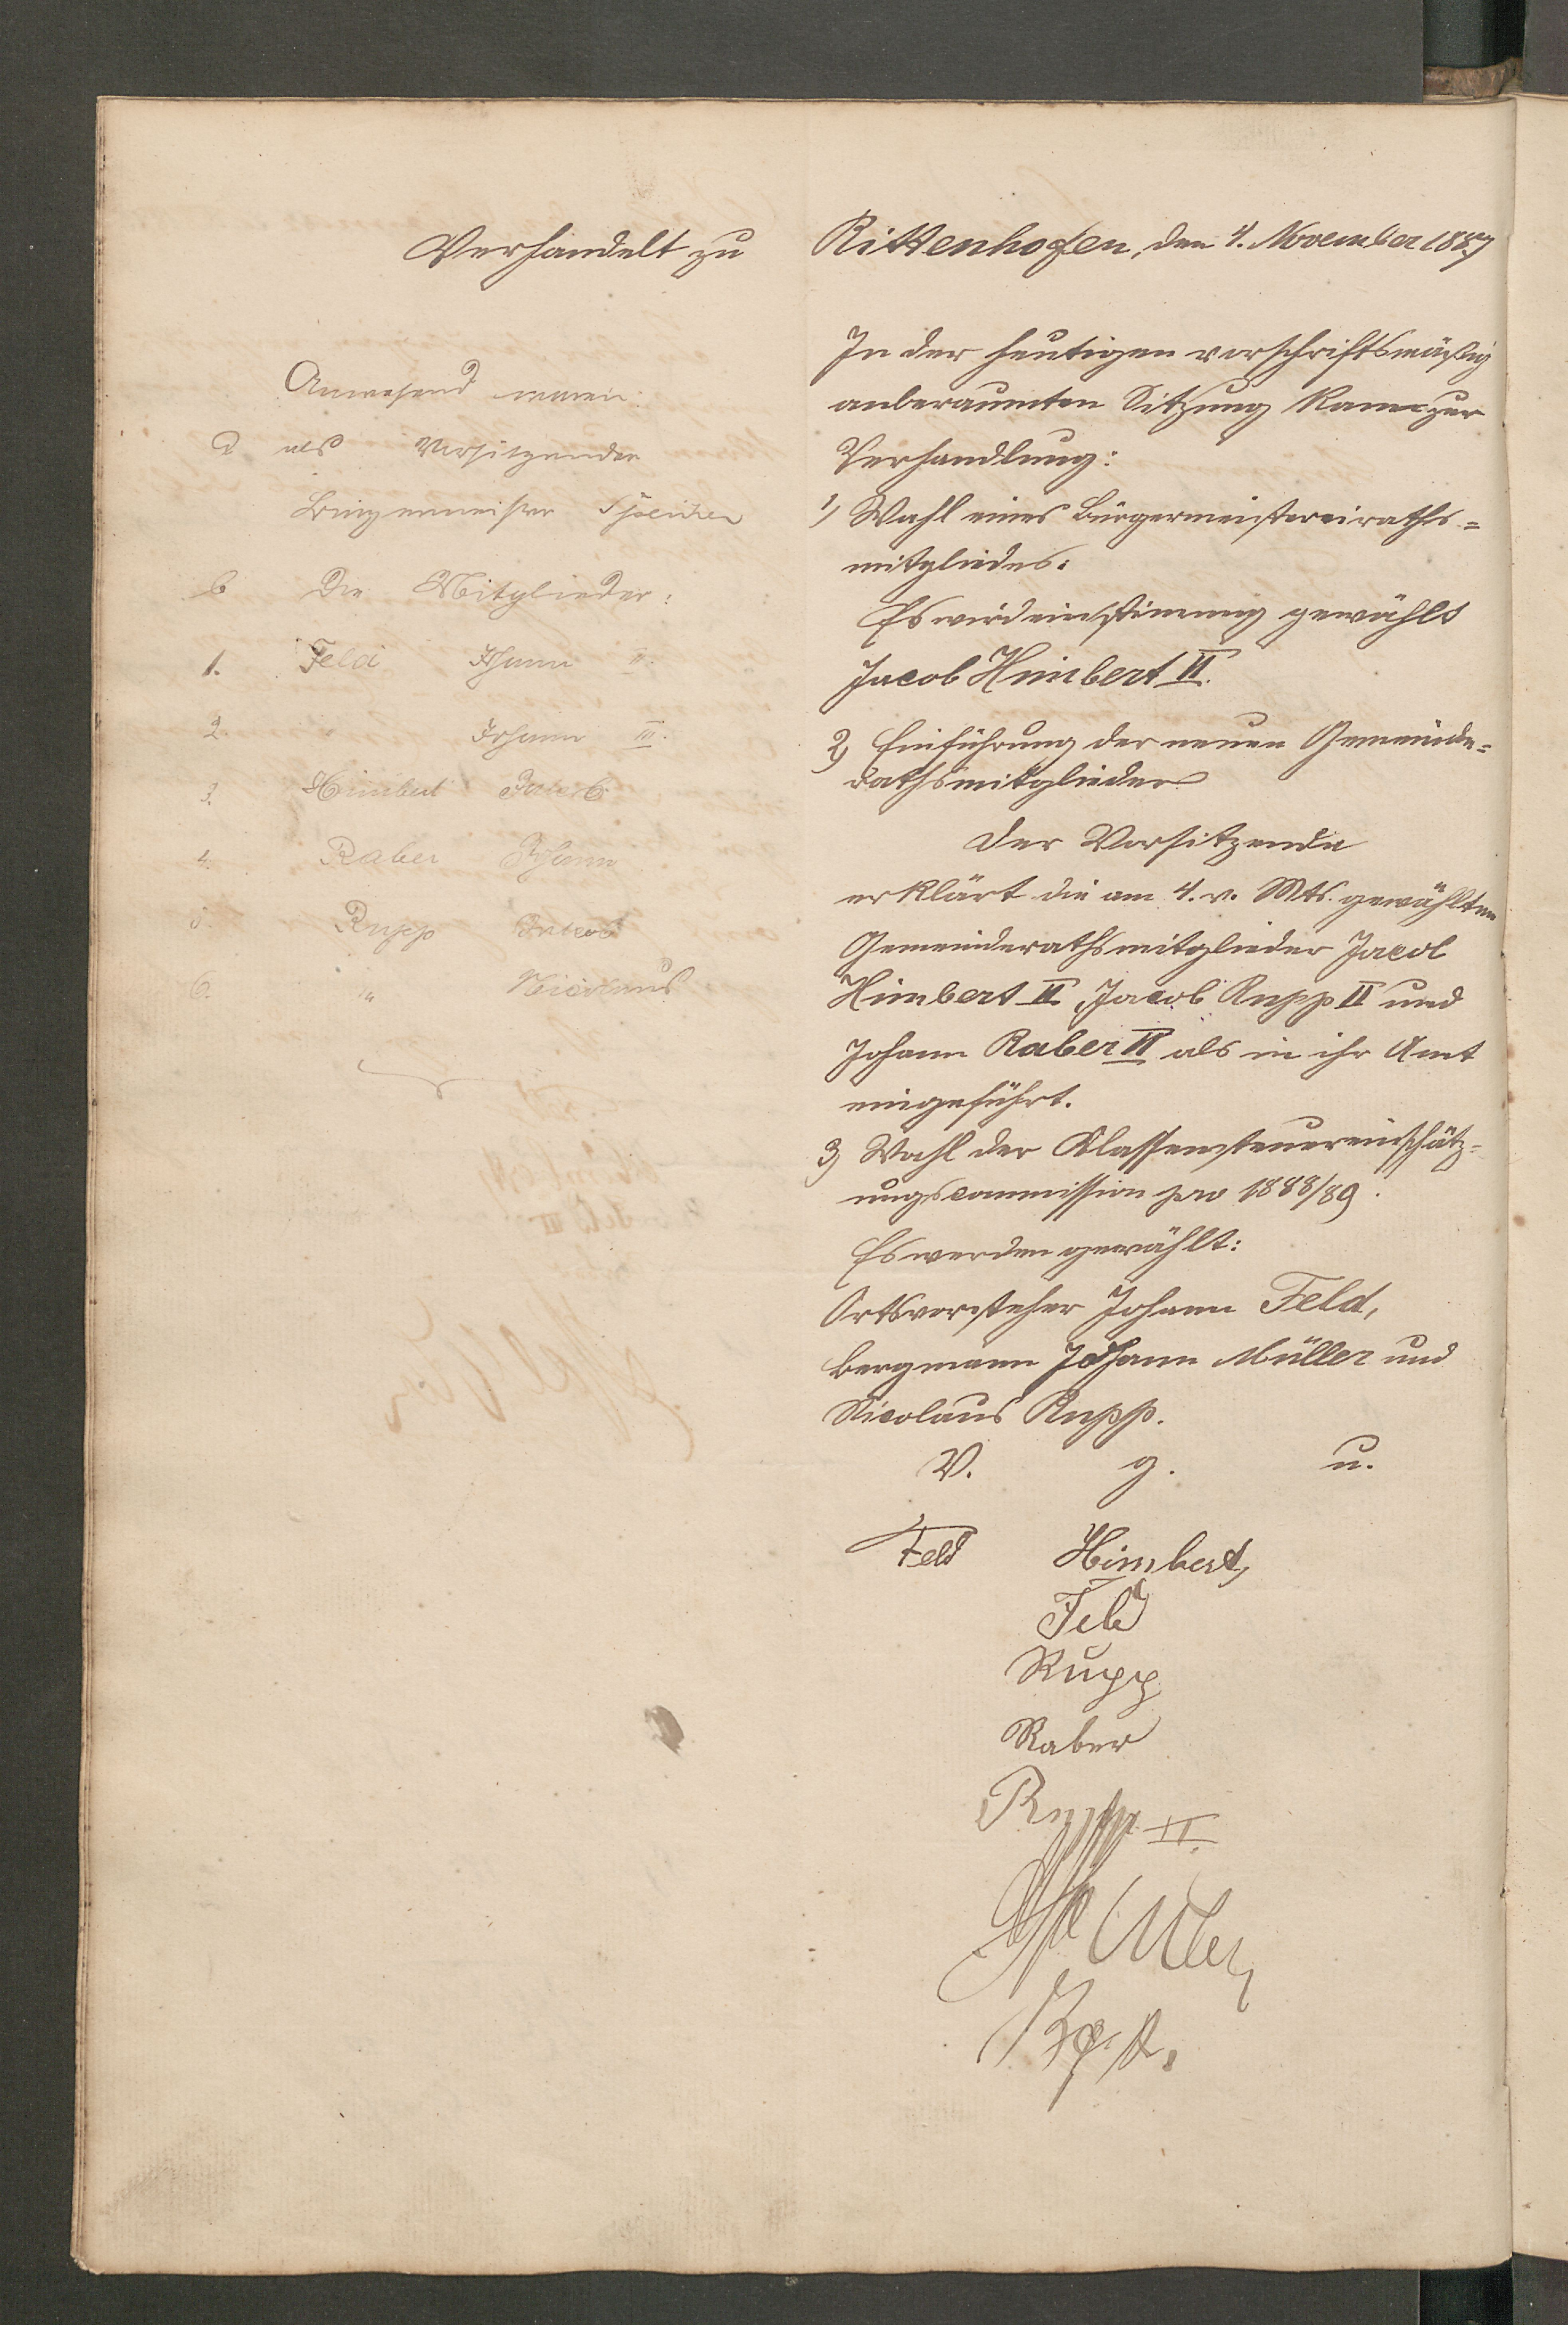 Verhandelt zu Rittenhofen, den 4. November 1887
Anwesend waren:
a als Vorsitzender
Bürgermeister Speicher
b Die Mitglieder:
1. Feld Johann II.
2. " Johann III.
3. Himbert Jakob
4. Raber Johann
5. Rupp Jakob
6. " Nicolaus
In der heutigen vorschriftsmäßig
anberaumten Sitzung kam zur
Verhandlung:
1) Wahl eines Bürgermeistereiraths=
mitgliedes:
Es wird einstimmig gewählt
Jacob Himbert II.
2) Einführung der neuen Gemeinde=
rathsmitglieder
Der Vorsitzende
erklärt die am 4. v. Mts. gewählten
Gemeinderathsmitglieder Jacob
Himbert II Jacob Rupp II und
Johann Raber II als in ihr Amt
eingeführt.
3) Wahl der Klassensteuereinschätz=
ungscommission pro 1888/89.
Es werden gewählt:
Ortsvorsteher Johann Feld,
Bergmann Johann Müller und
Nicolaus Rupp.
V. g. u.
Feld Himbert
Feld
Rupp
Raber
Rupp II.